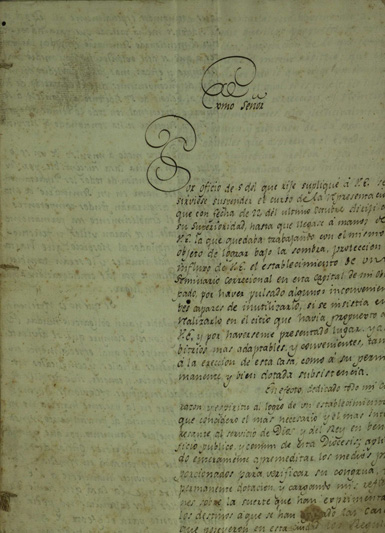 Exmo Señor
Por oficio de 5 del que rije supliqué á V.E. se
sirviese suspender el curso de la representacion
que con fecha de 22 del ultimo Octubre dirigi á
su Superioridad, hasta que llegase á manos de
V.E. la que quedaba trabajando con el mismo
objeto de lograr bajo la sombra, proteccion, è
influxo de V.E. el establecimiento de un
Seminario correccional en esta capital de mi Obis
pado, por haver pulsado algunos inconvenien
tes capaces de inutilizarlo, si se insistia en
realizarlo en el sitio que havia propuesto à
V.E. y por haverseme presentado lugar, y ar
bitrios mas adaptables, y convenientes, tan
à la ereccion de esta casa, como à su perma
manente, y bien dotada subsistencia.
En efecto, dedicado todo mi co
razon y espiritu al logro de un establecimiento
que considero el mas necesario y el mas inte
resante al servicio de Dios y del Rey en bene
ficio publico, y comun de esta Diocesis; apli
do enteramente a premeditar los medios pro
porcionados para verificar su congrua y
permanente dotacion, y cargando mis refle
nes sobre la suerte que han experimenta
los destinos a que se han las casas
que poseyeron en esta Ciudad los Regula